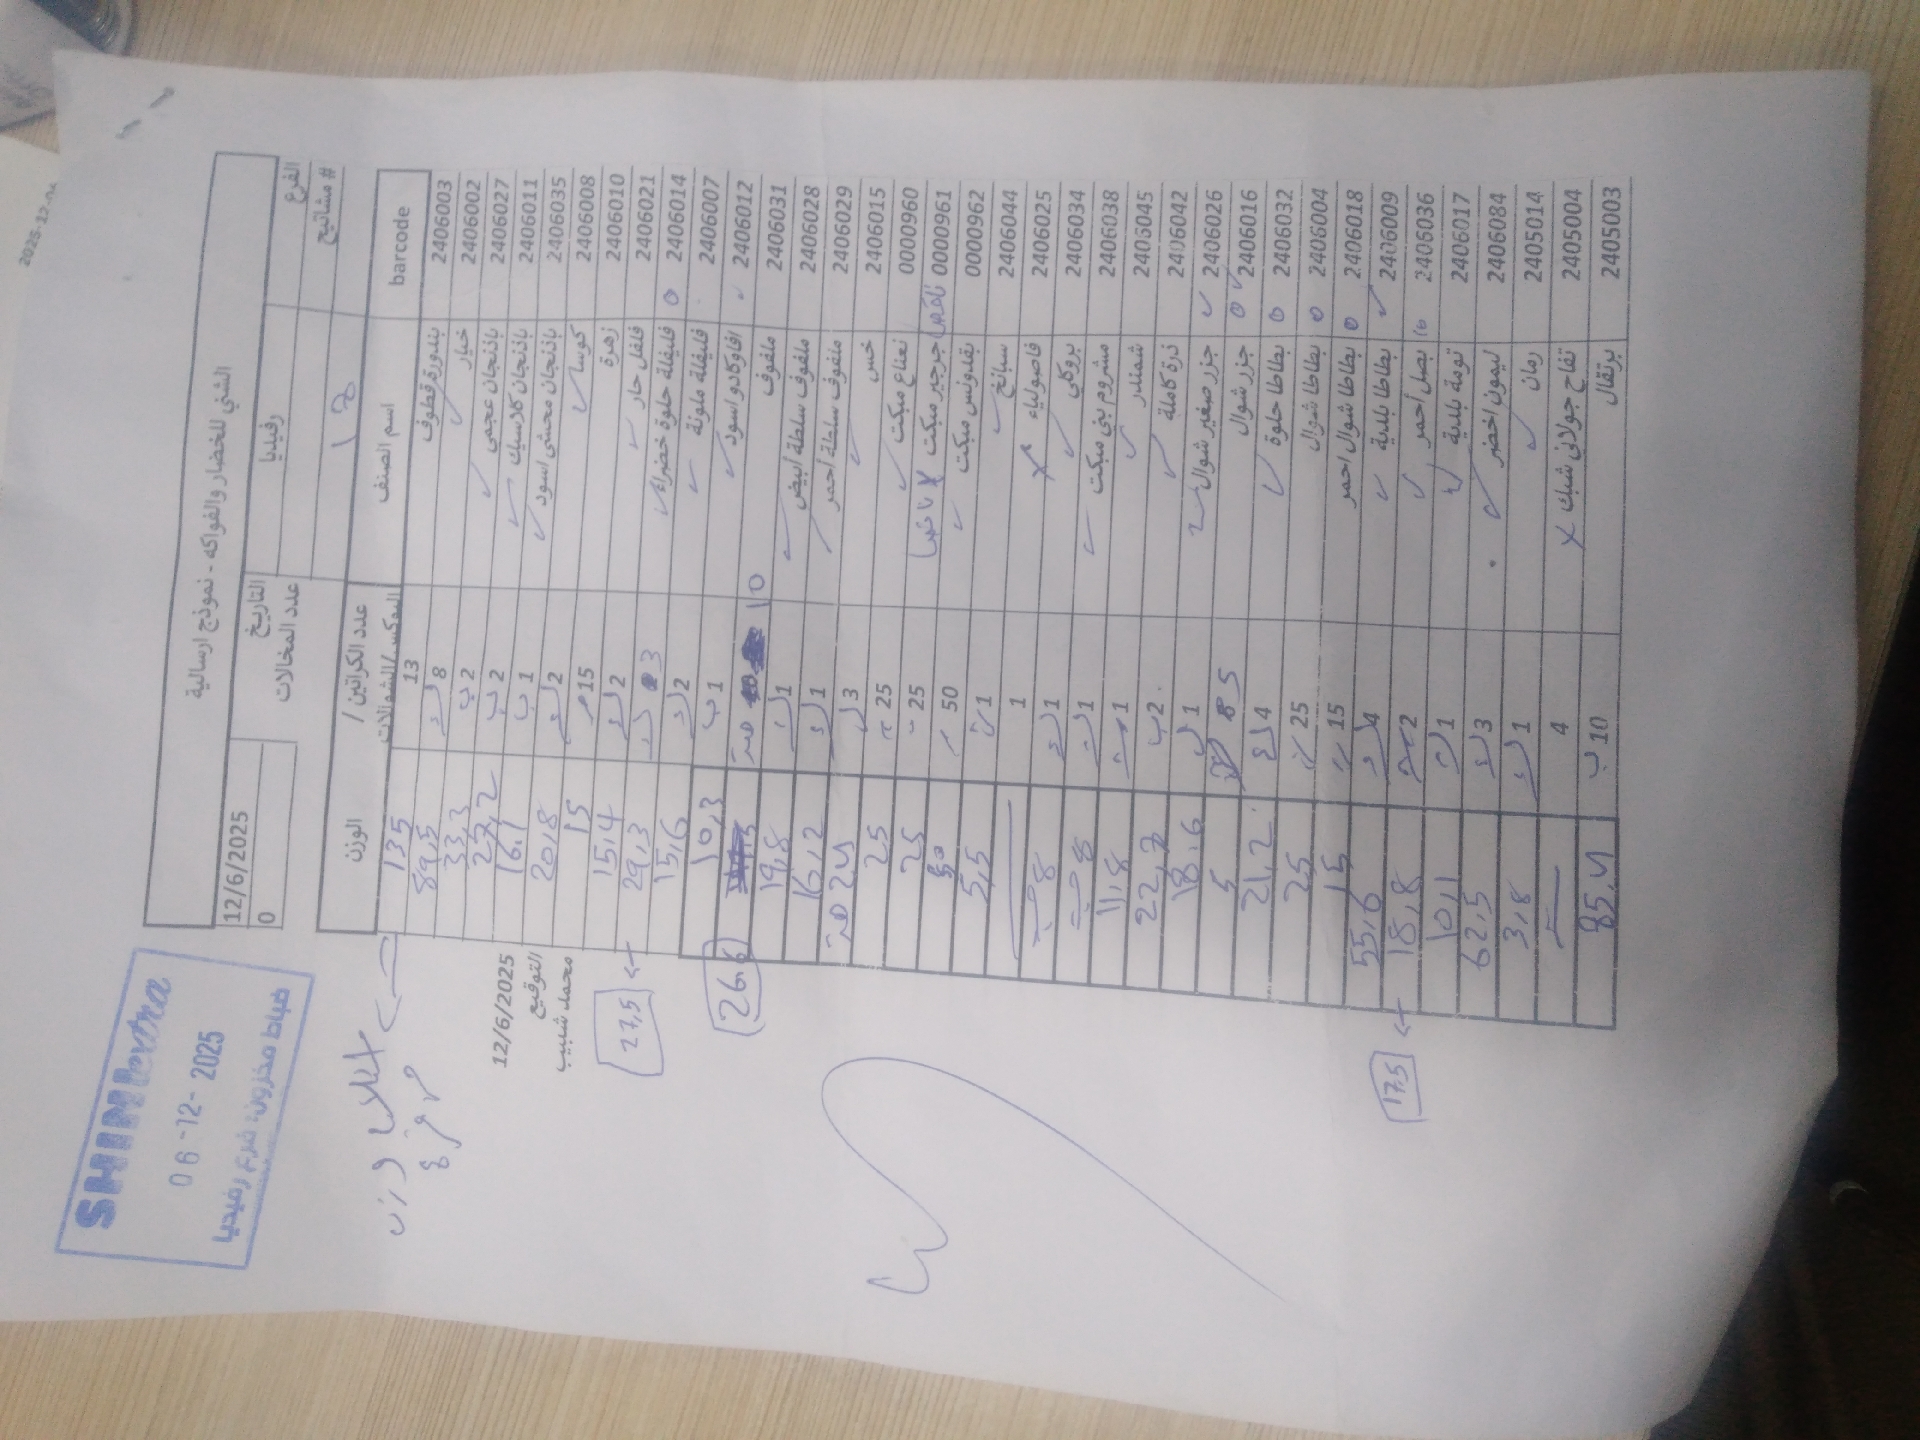 الشني للخضار والفواكه - نموذج ارسالية
الفرع رفيديا التاريخ 12/6/2025
# مشاتيح 12 عدد المخالات 0
barcode اسم الصنف عدد الكراتين / البوكس/الشوالات الوزن
2406003 بندورة قطوف 13 135
2406002 خيار 8 89,5
2406027 باذنجان عجمي 2 ب 33,3
2406011 باذنجان كلاسيك 2 ب
2406035 باذنجان محشي اسود 1 ب 16,1
2406008 كوسا 2 20,8
2406010 زهرة 15 15
2406021 فلفل حار 2 15,4
2406014 فليفلة حلوة خضراء 3 29,3
2406007 فليفلة ملونة 2 15,6
2406012 افاوكادو اسود 1 ب 10,3
2406031 ملفوف 10
2406028 ملفوف سلطة أبيض 1 19,8
2406029 ملفوف سلطة أحمر 1 16,2
2406015 خس 3 24
0000960 نعناع مبكت 25 25
0000961 جرجير مبكت 25 25
0000962 بقدونس مبكت 50 50
2406044 سبانخ 1 5,5
2406025 فاصولياء 1
2406034 بروكلي 1 8
2406038 مشروم بني مبكت 1 8
2406045 شمندر 1 11,8
2406042 ذرة كاملة 2 ب 22,7
2406026 جزر صغير شوال 1 18,6
2406016 جزر شوال 5 5
2406032 بطاطا حلوة 4 21,2
2406004 بطاطا شوال 25 25
2406018 بطاطا شوال احمر 15 15
2406009 بطاطا بلدية 4 55,6
2406036 بصل أحمر 2 18,8
2406017 تومة بلدية 1 10,1
2406084 ليمون اخضر 3 62,5
2405014 رمان 1 3,8
2405004 تفاح جولاني شبك 4
2405003 برتقال 10 ب 85,4
12/6/2025
التوقيع
محمد شبيب
27,5
26.6
17.5
SHINI extra
06 -12- 2025
ضباط مخزون: فرع رفيديا